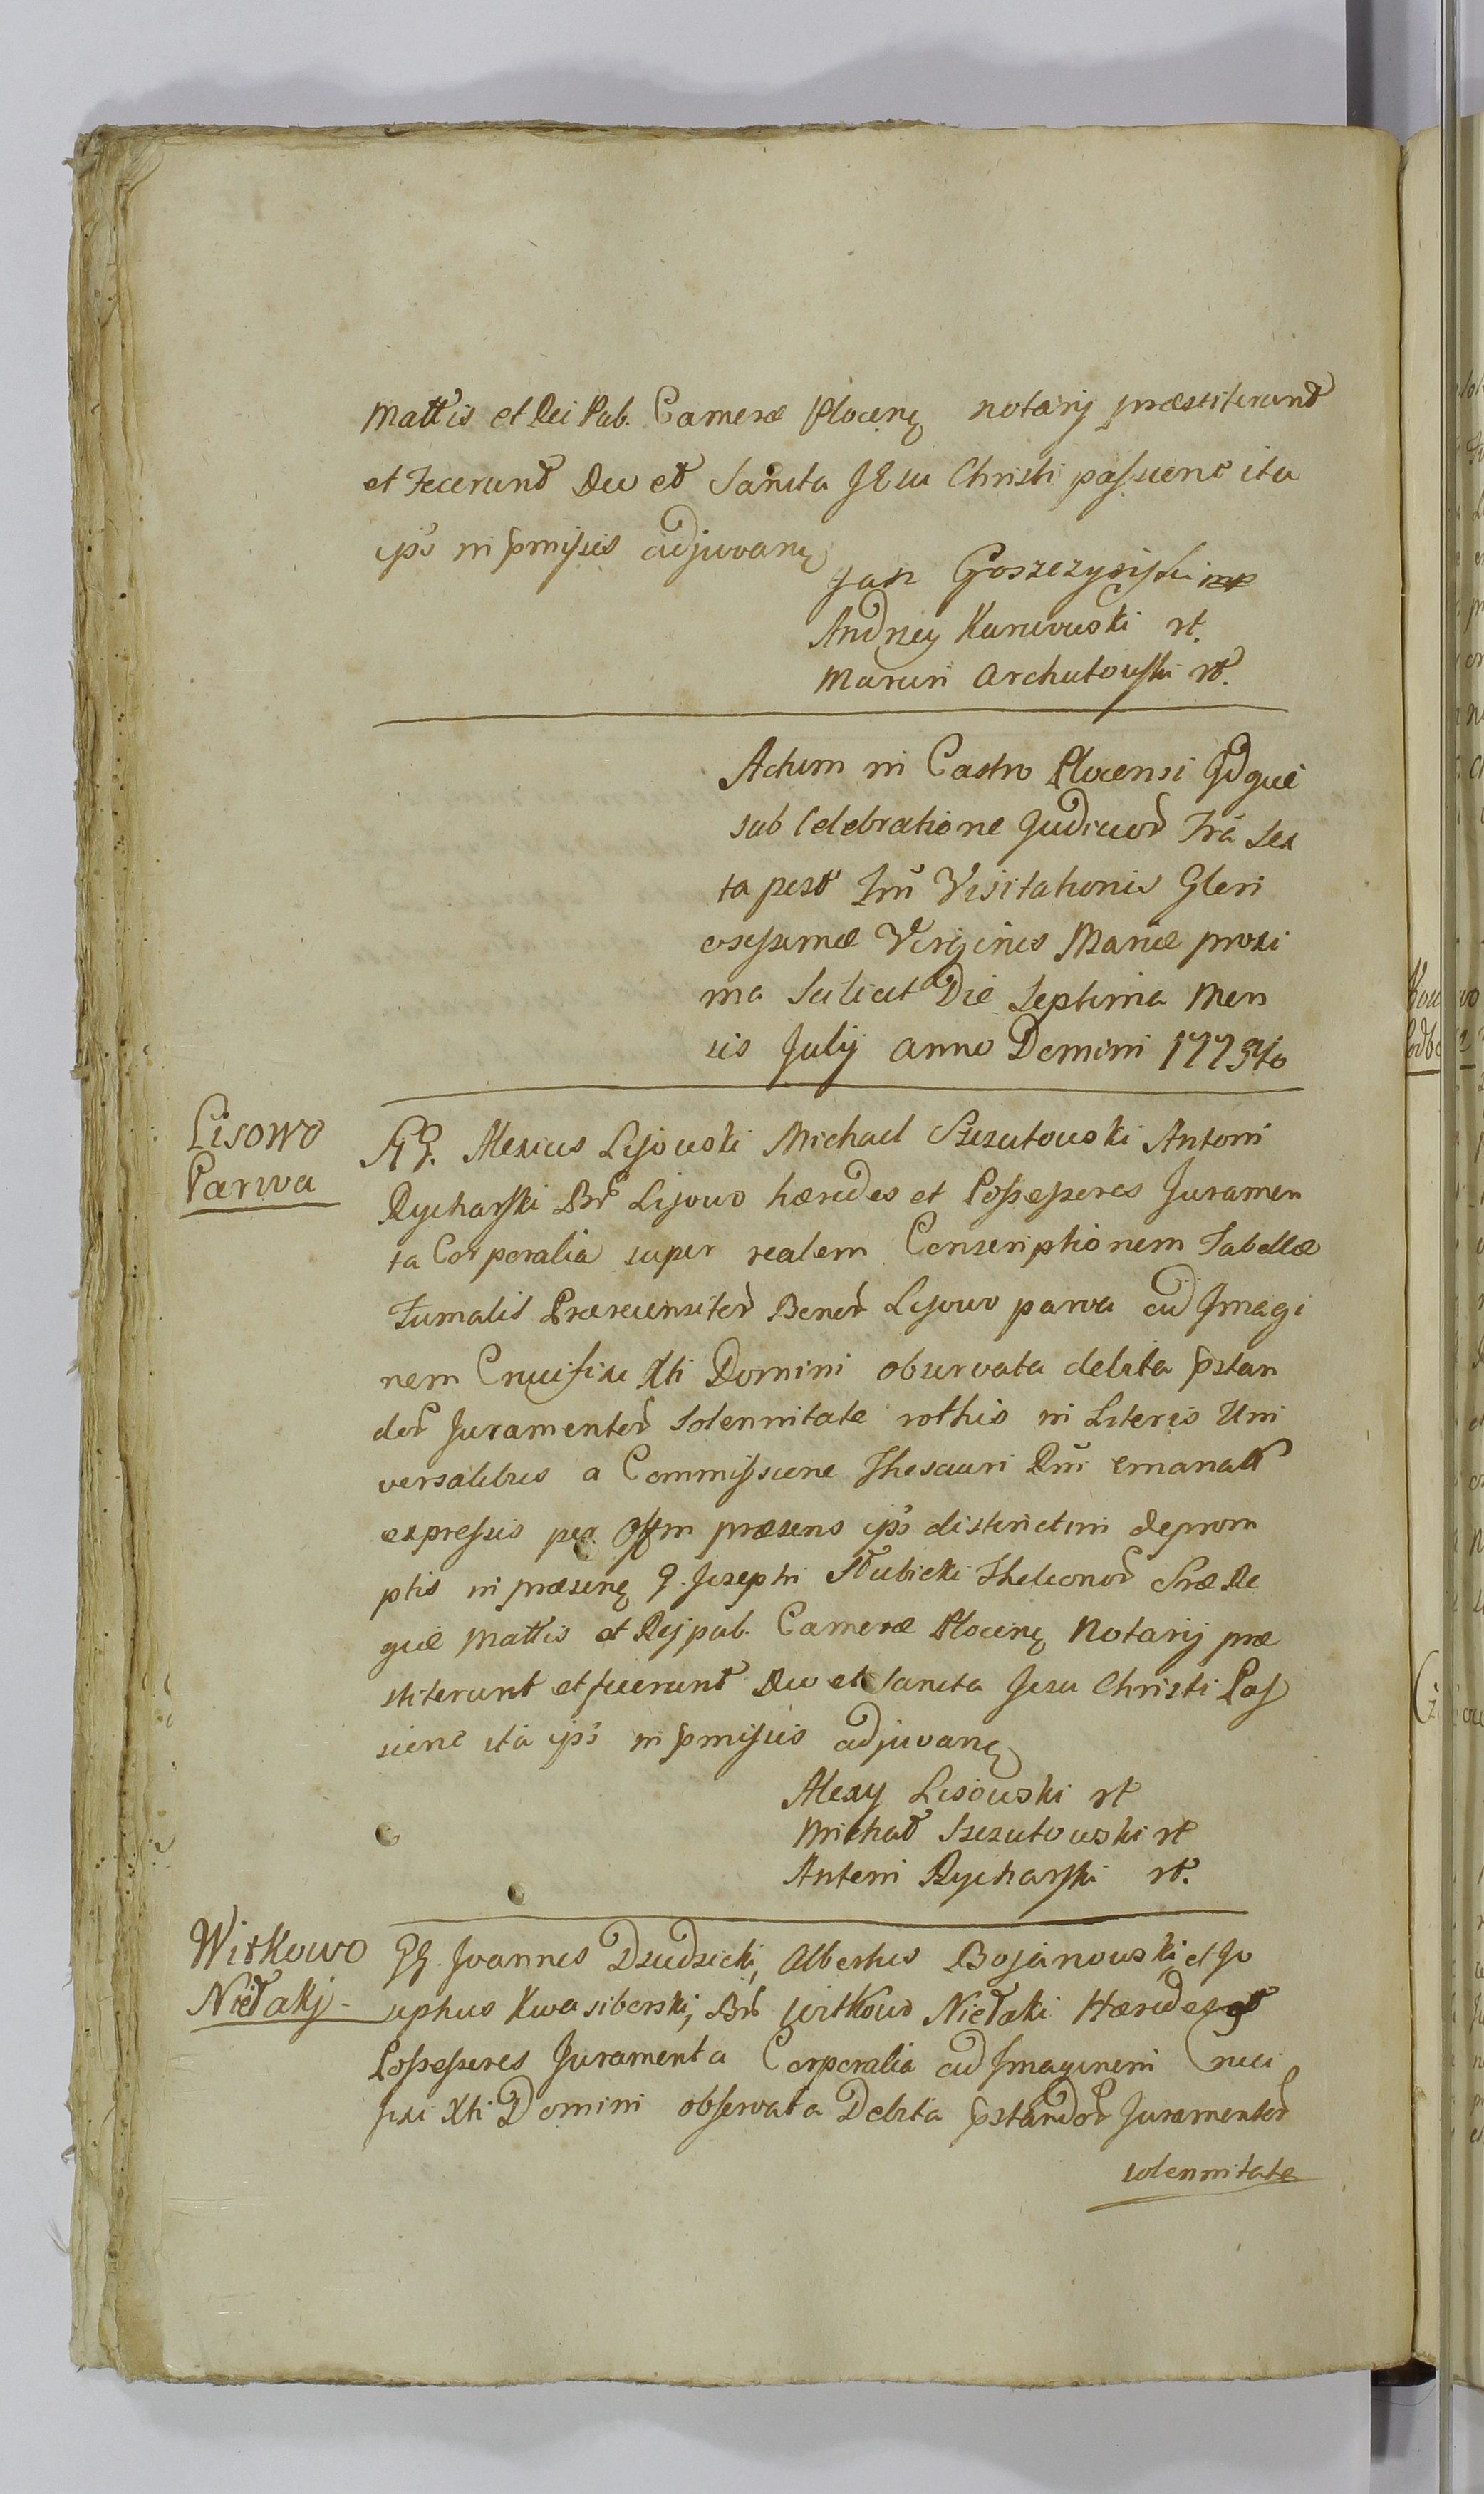 Mattis et Rei Pub. Cameræ Plocenę notarij præstiterunt
et Fecerunt Deo et Sancta JEsu Christi passione ita
ips in pmissis adjuvanę
Jan Goszczyński mp
Andrzey Karwowski rt.
Marcin Archutowski rt.
Actum in Castro Plocensi Jdque
sub Celebratione Judicior Fra Sex
ta post Ftm Visitationis Glori
osissimæ Virginis Mariæ proxi
ma Scilicet Die Septima Men
sis July anno Domini 1775to
Lisowo
Parva
GG. Alexius Lisowski Michael Szczutowski Antoni
Rycharski Br Lisowo hæredes et Possessores Juramen
ta Corporalia super realem Conscriptionem Tabellæ
Fumalis Præreconsitor Bonor Lisowo parva ad Jmagi
nem Crucifixi Xti Domini observata debita pstan
dor Juramentor Solennitate rothis in Literis Uni
versalibus a Commissione Thesauri Rni emanatt
expressis per Offm præsens ips distinctim deprom
ptis in præsenę G. Josephi Słubicki Theleonor Sræ Re
giæ Mattis et Rejpub. Cameræ Plocenę Notarij præ
stiterunt et fecerunt Deo et Sancta Jesu Christi Pas
sione ita ips in pmissis adjuvanę
Alexy Lisowski rt
Michał Szczutowski rt
Antoni Rycharski rt.
Witkowo
Niełakj
GG. Joannes Dzudzicki, Albertus Bojanowski et Jo
sephus Kwasiborski, Br Witkowo Niełaki Hæredes et
Possessores Juramenta Corporalia ad Jmaginem Cruci
fixi Xti Domini observata Debita pstandor Juramentor
solennitate